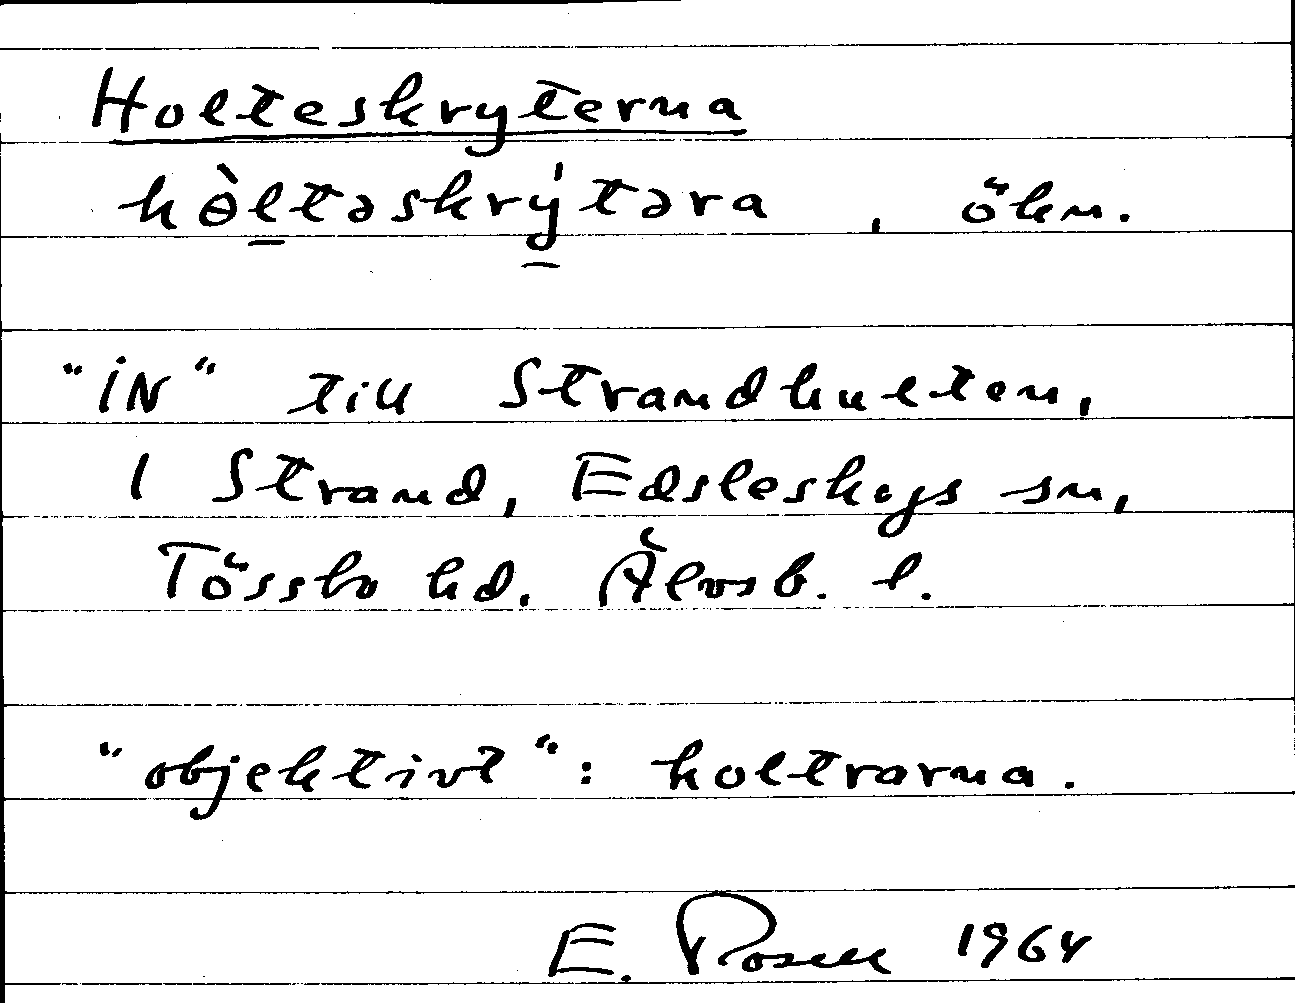 Holteskryterna
hòl̠təskrý̠təra , ökn.
"IN" till Strandhulten,
I Strand, Edsleskogs sn,
Tössbo hd. Älvsb. l.
"objektivt": holtrarna.
E. Rosell 1964